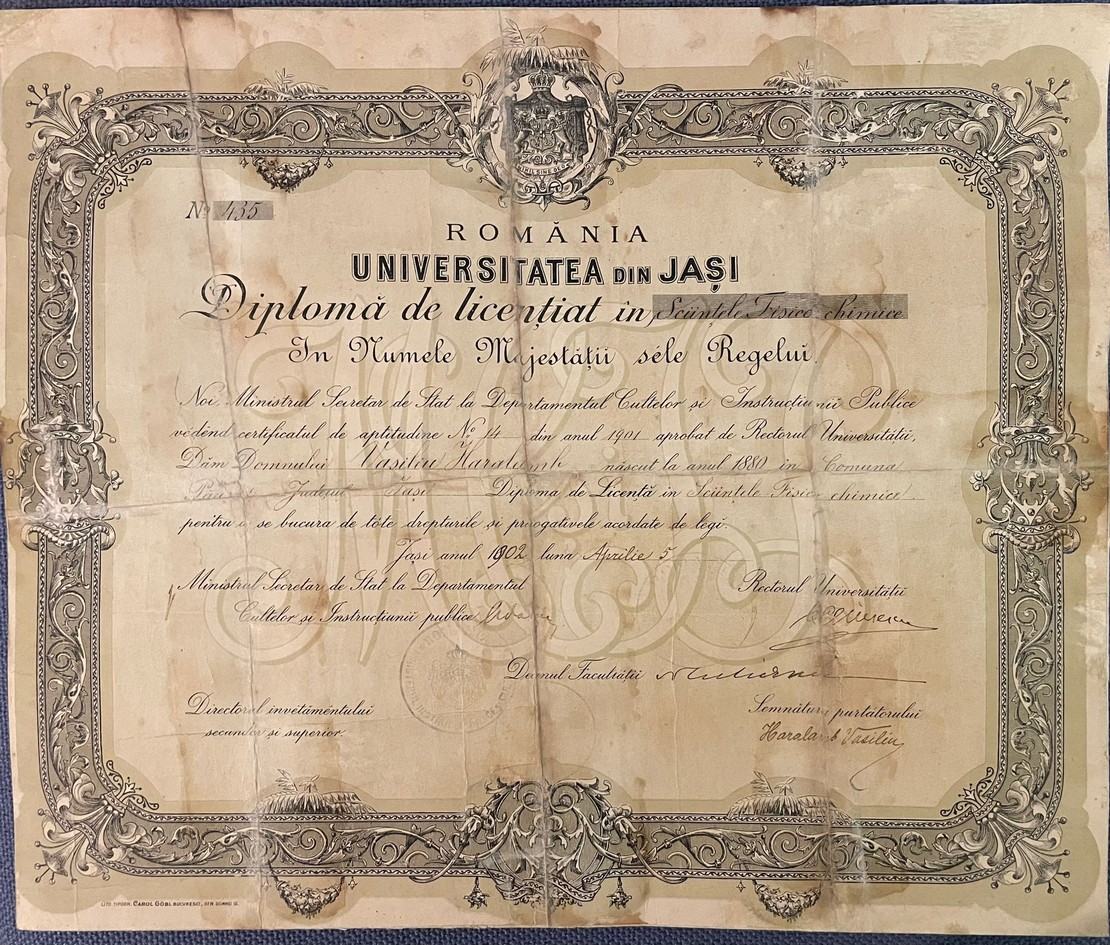 NIHIL SINE DE
No 435
ROMÂNIA
UNIVERSITATEA DIN JAȘI
Diplomă de licențiat în Sciințele Fisico chimice
In Numele Majestății séle Regelui.
Noi Ministrul Secretar de Stat la Departamentul Cultelor și Instrucțiunii Publice
védênd certificatul de aptitudine No 14 din anul 1901 aprobat de Rectorul Universității,
Dăm Domnului Vasiliu Haralamb născut la anul 1880 in Comuna
Județul Iași Diploma de Licență in Sciințele Fisico chimice
pentru a se bucura de tóte drepturile și prerogativele acordate de legi.
Jași anul 1902 luna Aprilie 5
Ministrul Secretar de Stat la Departamentul
Rectorul Universității
Cultelor și Instrucțiunii publice
Decanul Facultății
Directorul invětămêntului
secundar și superior.
Semnătura purtătorului
Haralamb Vasiliu
LITO. TIPOGR. CAROL GÖBL BUCURESCI, STR. DOMNEI 16.